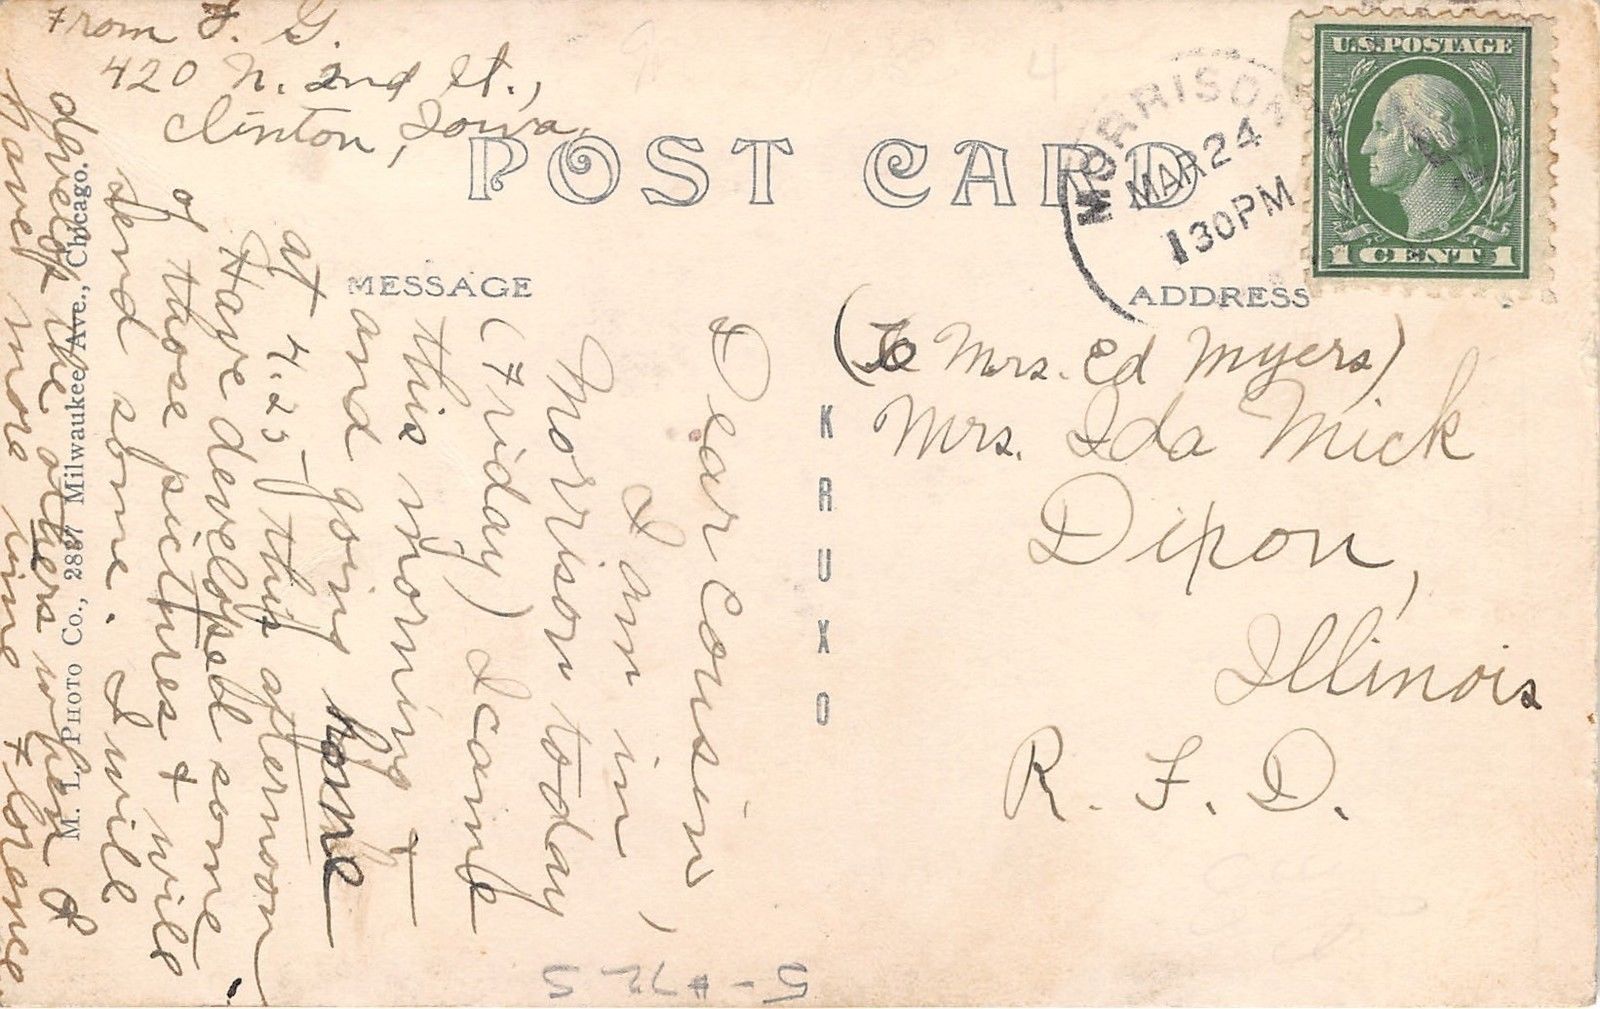 From F. G.
420 N. 2nd St.,
Clinton, Iowa.
POST CARD
MORRISON
MAR 24
130PM
U.S. POSTAGE
1 CENT 1
MESSAGE
ADDRESS
Dear Cousin,
I am in
Morrison today
(Friday) I came
this morning +
and going home
at 4:25 this afternoon.
Have developed some
of those pictures & will
send some. I will
develop the others when I
have more time Florence
(To Mrs. Ed Myers)
Mrs. Ida Mick
Dixon,
Illinois
R. F. D.
KRUXO
M. L. PHOTO Co., 2887 Milwaukee Ave., Chicago.